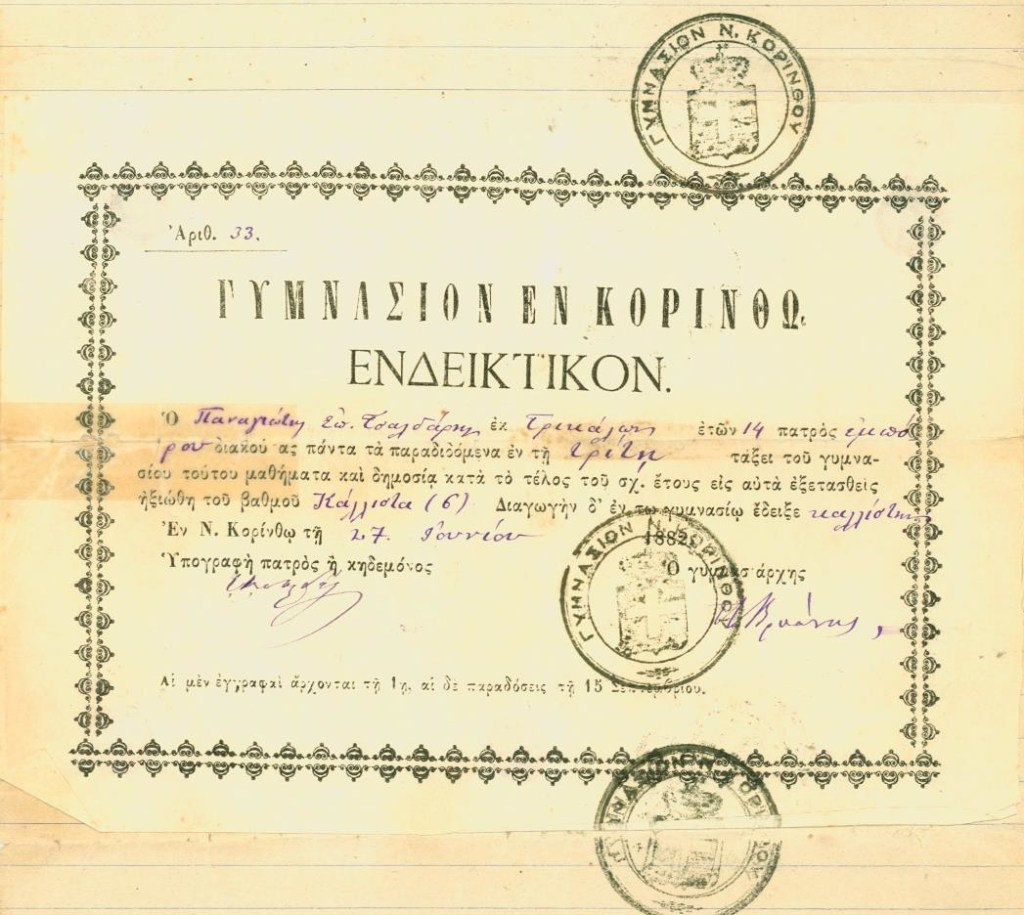 ΓΥΜΝΑΣΙΟΝ Ν. ΚΟΡΙΝΘΟΥ
Ἀριθ. 33.
ΓΥΜΝΑΣΙΟΝ ΕΝ ΚΟΡΙΝΘΩ.
ΕΝΔΕΙΚΤΙΚΟΝ.
Ὁ Παναγιώτης Σπ. Τσαλδάρης ἐκ Τρικάλων ἐτῶν 14 πατρὸς ἐμπό
ρου διακούσας πάντα τὰ παραδιδόμενα ἐν τῇ τρίτῃ τάξει τοῦ γυμνα-
σίου τούτου μαθήματα καὶ δημοσίᾳ κατὰ τὸ τέλος τοῦ σχ. ἔτους εἰς αὐτὰ ἐξετασθεὶς
ἠξιώθη τοῦ βαθμοῦ Κάλλιστα (6) Διαγωγὴν δ' ἐν τῷ γυμνασίῳ ἔδειξε καλλίστην
Ἐν Ν. Κορίνθῳ τῇ 27. Ἰουνίου 1882
Ὑπογραφὴ πατρὸς ἢ κηδεμόνος Ὁ γυμνασιάρχης
ΓΥΜΝΑΣΙΟΝ Ν. ΚΟΡΙΝΘΟΥ
Αἱ μὲν ἐγγραφαὶ ἄρχονται τῇ 1ῃ, αἱ δὲ παραδόσεις τῇ 15 Σεπτεμβρίου.
ΓΥΜΝΑΣΙΟΝ Ν. ΚΟΡΙΝΘΟΥ